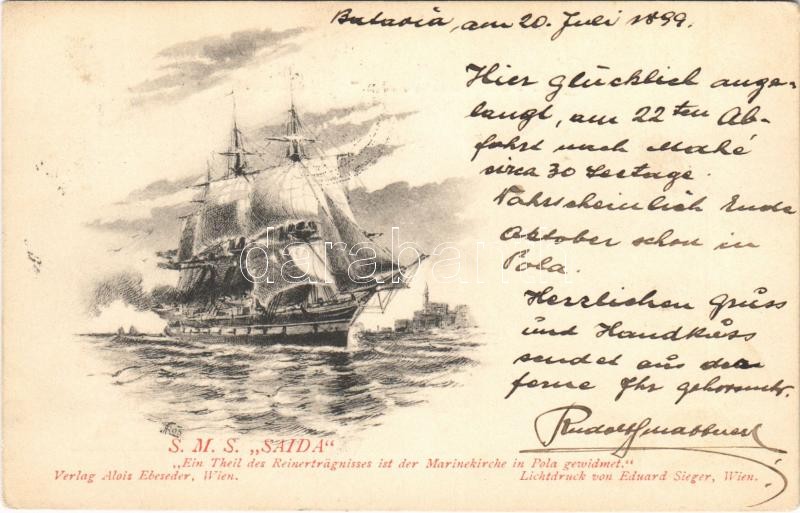 Batavia, am 20. Juli 1899.
Hier glücklich ange-
langt, am 22ten Ab-
fahrt nach Mahé
circa 30 Seetage.
Wahrscheinlich Ende
Oktober schon in
Pola.
Herzlichen Gruss
und Handkuss
sendet aus der
ferne Ihr gehorsamster
Rudolf
darabanth
S. M. S. „SAIDA“
„Ein Theil des Reinerträgnisses ist der Marinekirche in Pola gewidmet.“
Verlag Alois Ebeseder, Wien. Lichtdruck von Eduard Sieger, Wien.